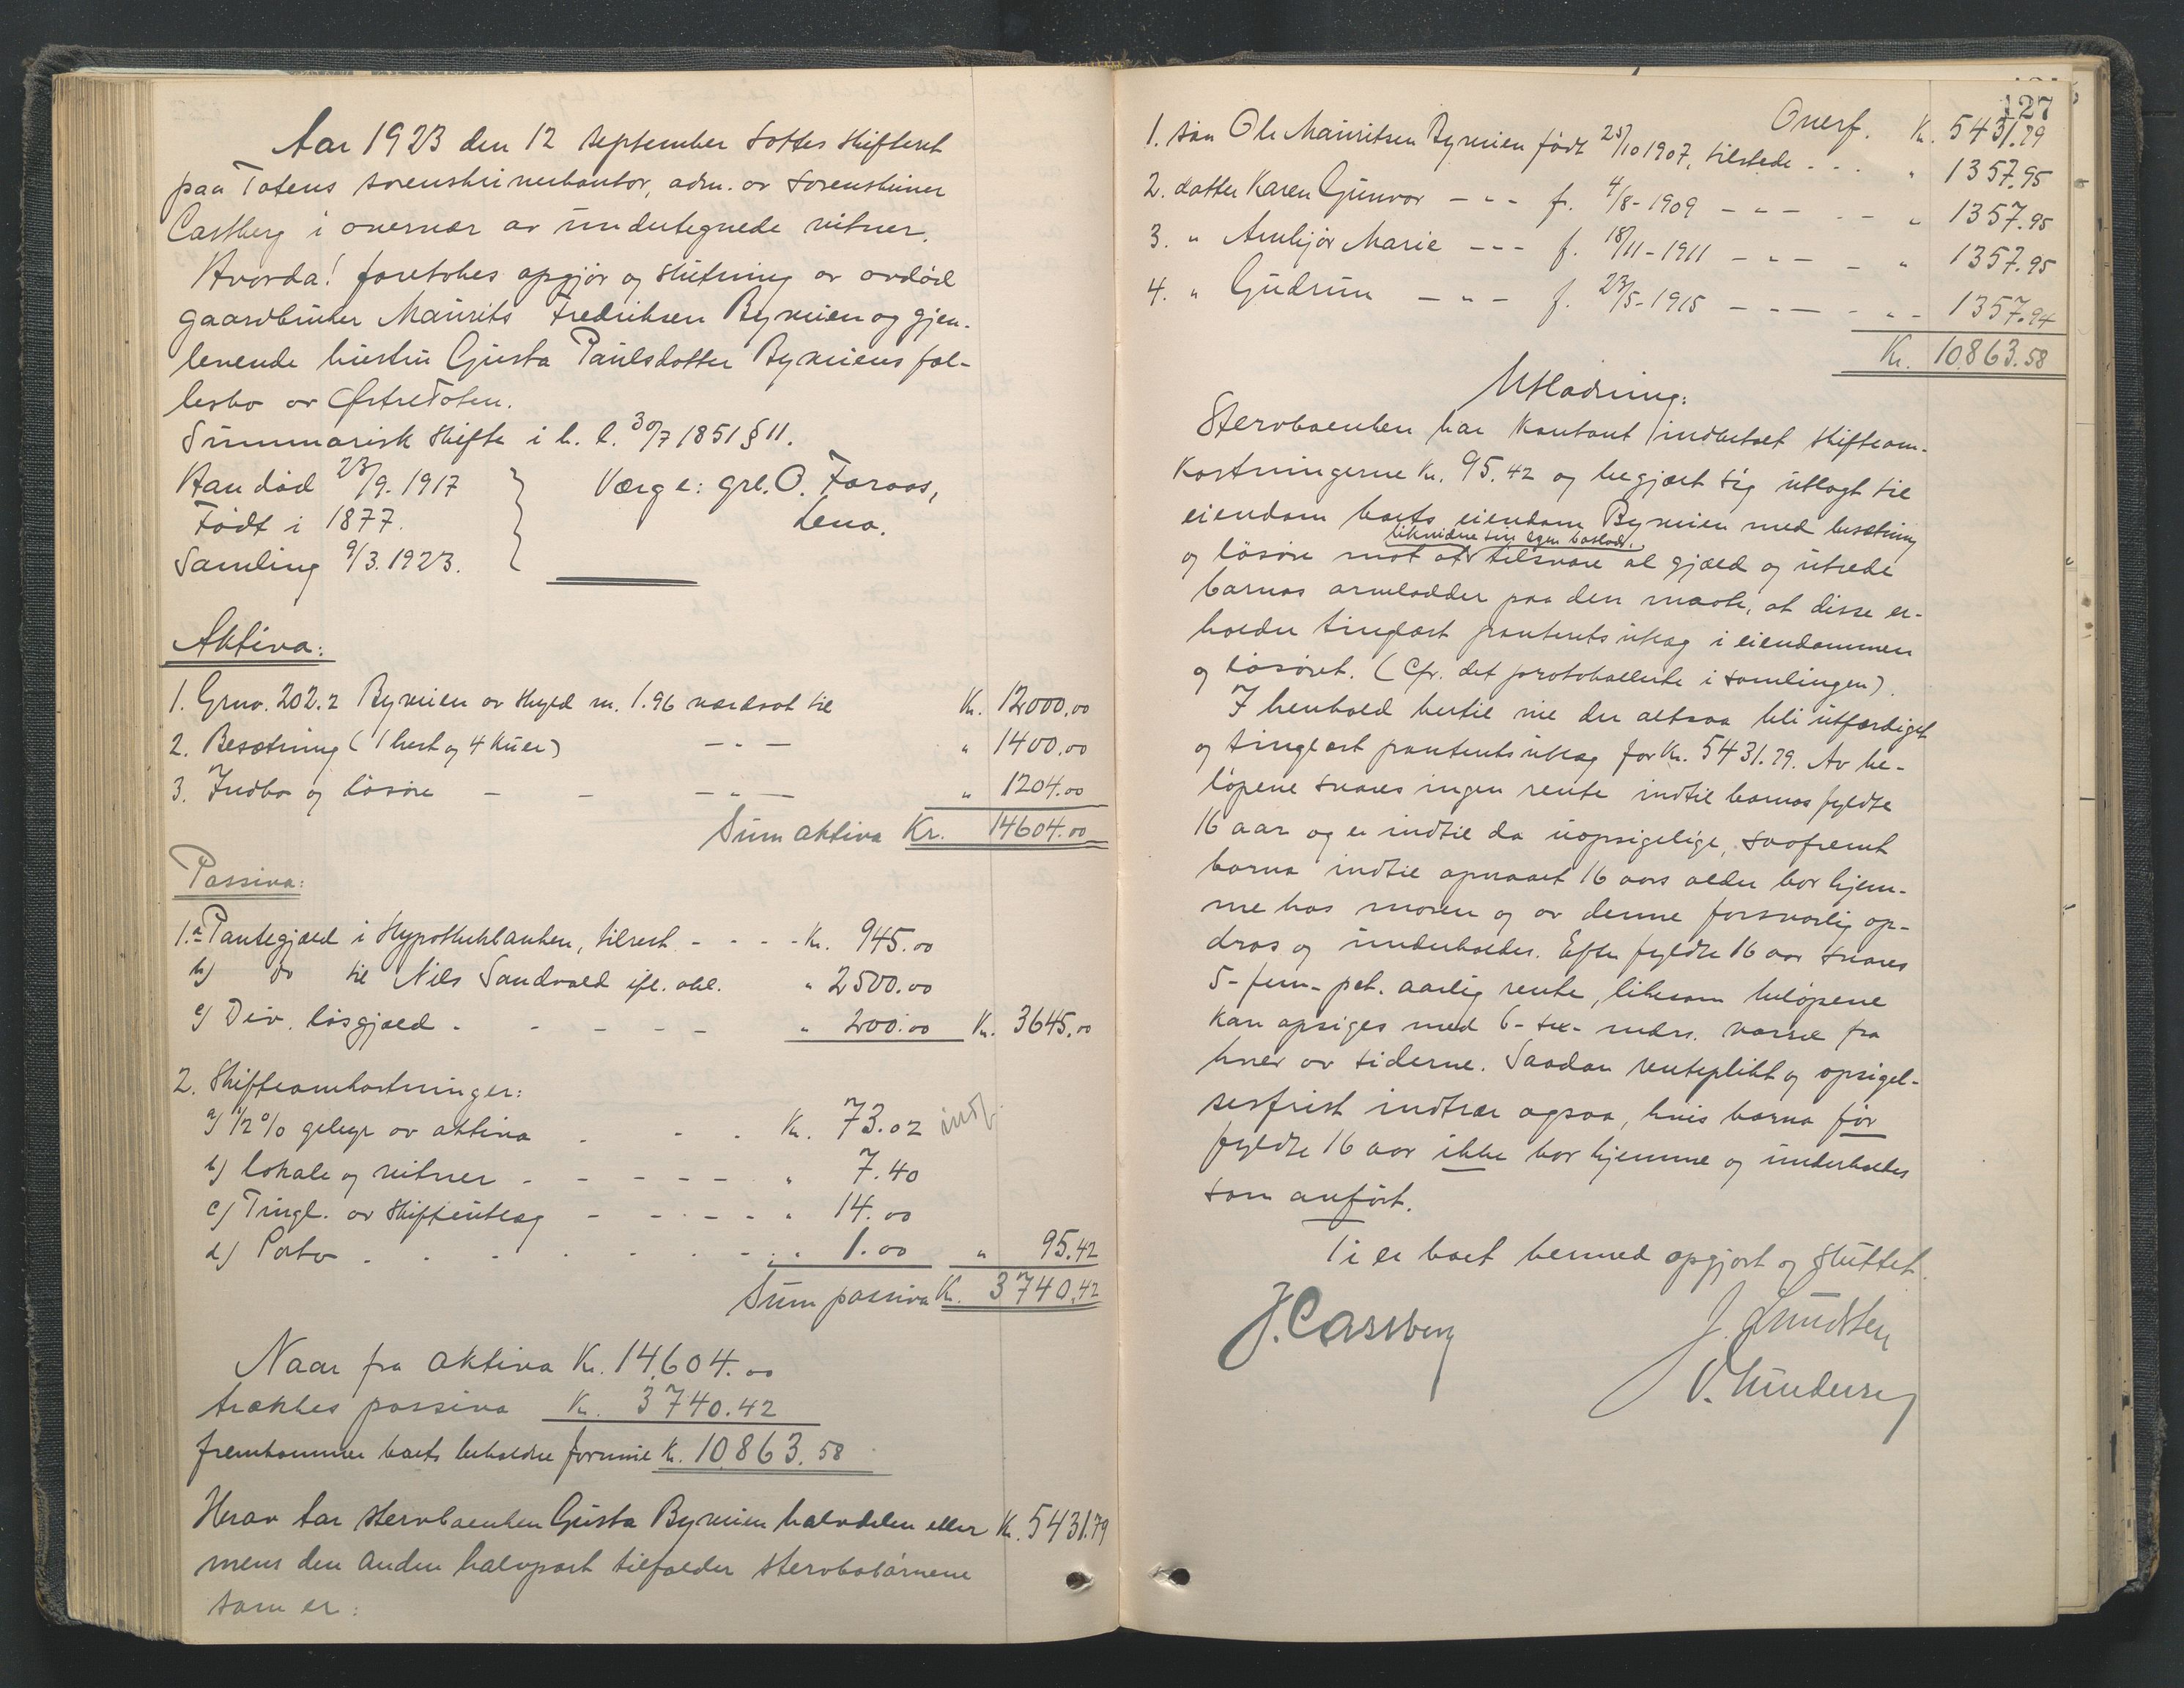 Aar 1923 den 12 september sattes skifteret
paa Totens sorenskriverkontor, adm. av sorenskriver
Castberg i overvær av undertegnede vitner.
Hvorda! foretokes opgjør og slutning av avdød
gaardbruker Maurits Fredriksen Bymien og gjen-
levende hustru Gusta Paulsdatter Bymiens fæl-
lesbo av Østre Toten.
Summarisk skifte i h. l. 30/7 1851 § 11.
Han død 23/9. 1917
Født i 1877.
Samling 9/3. 1923.
Værge: grl. O. Faraas,
Lena.
Aktiva:
1. Grnv. 202.2 Bymien av skyld m. 1.96 værdsat til Kr. 12000.00
2. Besætning (1 hest og 4 kuer) - " - " 1400.00
3. Indbo og løsøre - - - " - " 1204.00
Sum aktiva Kr. 14604.00
Passiva:
1. a Pantegjæld i Hypothekbanken, tilrest. - - - - Kr. 945.00
b) do til Nils Sandvold ifl. obl. " 2500.00
c) Div. løsgjæld - - - - - " 200.00 Kr. 3645.00
2. Skifteomkostninger:
a) 1/2 % gebyr av aktiva - - - Kr. 73.02 indf.
b) lokale og vitner - - - - - " 7.40
c) Tingl. av skifteutlæg - - - - " 14.00
d) Porto - - - - - " 1.00 " 95.42
Sum passiva Kr. 3740.42
Naar fra aktiva Kr. 14604.00
trækkes passiva Kr. 3740.42
fremkommer boets beholdne formue Kr. 10863.58
Herav tar stervboenken Gusta Bymien halvdelen eller Kr. 5431.79
mens den anden halvpart tilfalder stervbobarnene
som er:
127
Overf. Kr. 5431.79
1. søn Ole Mauritsen Bymien født 25/10 1907, tilstede - - - " 1357.95
2. datter Karen Gunvor - " - f. 4/8 - 1909 - " - - - " 1357.95
3. " Arnbjør Marie - " - f. 18/11 - 1911 - " - - " 1357.95
4. " Gudrun - " - f. 23/5 - 1915 - " - - " - 1357.94
Kr. 10863.58
Utlodning:
Stervboenken har kontant indbetalt skifteom-
kostningerne Kr. 95.42 og begjært sig utlagt til
eiendom boets eiendom Bymien med besætning
likvidere sin egen boslodd,
og løsøre mot at tilsvare al gjæld og utrede
barnas arvelodder paa den maate, at disse er-
holder tinglæst panteretsutlæg i eiendommen
og løsøret. (Cfr. det protokollerte i samlingen).
I henhold hertil vil der altsaa bli utfærdiget
og tinglæst panteretsutlæg for Kr. 5431.79. Av be-
løpene svares ingen rente indtil barnas fyldte
16 aar og er indtil da uopsigelige, saafremt
barna indtil opnaaet 16 aars alder bor hjem-
me hos moren og av denne forsvarlig op-
dras og underholdes. Efter fyldte 16 aar svares
5 - fem - pct. aarlig rente, likesom beløpene
kan opsiges med 6 - sex - mdrs. varsel fra
hver av siderne. Saadan renteplikt og opsigel-
sesfrist indtrær ogsaa, hvis barna før
fyldte 16 aar ikke bor hjemme og underholdes
som anført.
Ti er boet hermed opgjort og sluttet.
J. Castberg
J. Knudsen